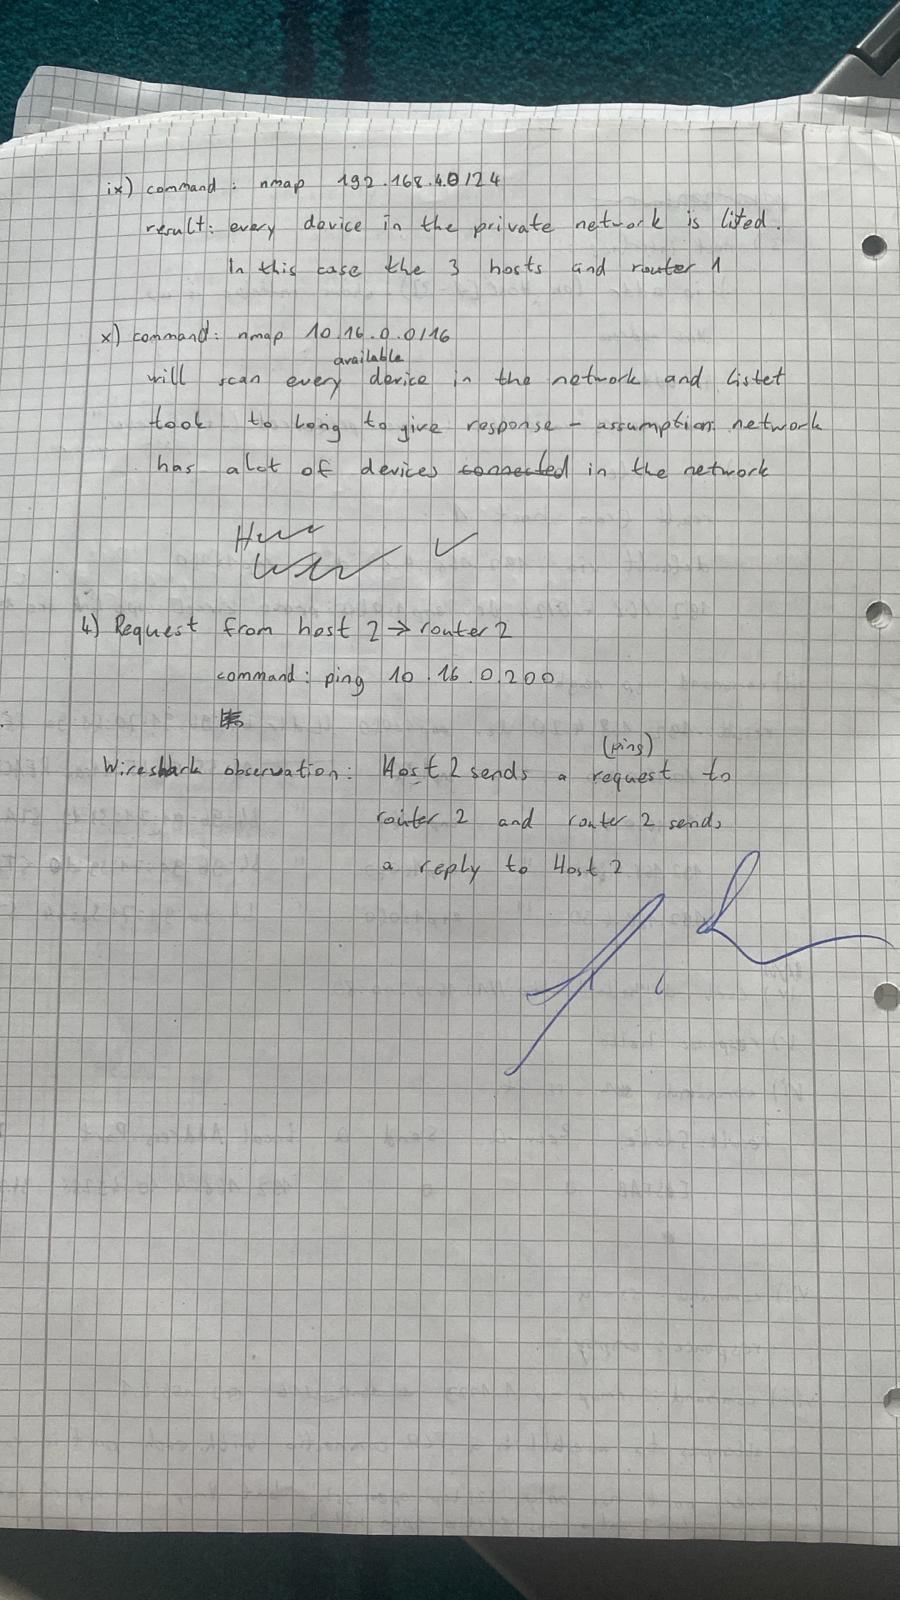 ix) command : nmap 192.168.4.0/24
result: every device in the private network is listed.
In this case the 3 hosts and router 1
x) command: nmap 10.16.0.0/16
available
will scan every device in the network and listet
took to long to give response - assumption: network
has alot of devices connected in the network
4) Request from host 2 → router 2
command: ping 10.16.0.200
(ping)
Wireshark observation: Host 2 sends a request to
router 2 and router 2 sends
a reply to Host 2